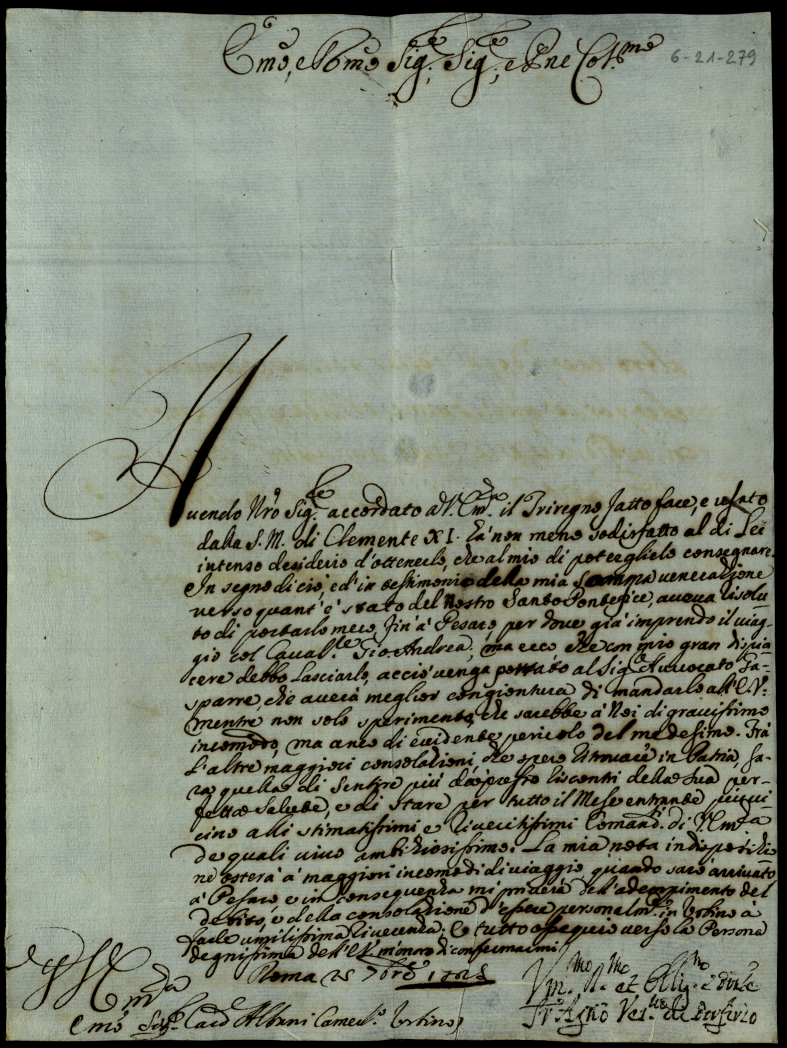 Emo, e Rmo Sig.re, Sig.re, e Pne Col.mo
6-21-279
Avendo Nro Sig.re accordato a V. Em.a il Triregno fatto fare, e usato
dalla S. M. di Clemente XI. hà non meno sodisfatto al di Lei
intenso desiderio d'ottenerlo, che al mio di poterglielo consegnare.
In segno di ciò, ed'in testimonio della mia somma venerazione
verso quant'è stato del Nostro Santo Pontefice, aveva risolu
to di portarlo meco, fin'à Pesaro, per dove già imprendo il viag-
gio col Caval.re Gio: Andrea; ma ecco, che con mio gran dispia
cere debbo lasciarlo, acciò venga portato al Sig.r Avvocato Ga-
sparre, che averà meglior congiontura di mandarlo all'E. V.
mentre non solo sperimento, che sarebbe à Noi di gravissimo
incomodo, ma anco di evidente pericolo del medesimo. Frà
l'altre maggiori consolazioni che spero ritrovare in Patria, sa-
rà quella di sentire più dapresso riscontri della sua per-
fetta salute, e di stare per tutto il Mese entrante più vi
cino alli stimatissimi e riveritissimi Comand.i di V. Em.za
de quali vivo ambiziosissimo. La mia nota indisposizio
ne osterà à maggiori incomodi di viaggio, quando sarò arrivato
à Pesaro, e in conseguenza mi priverà dell'adempimento del
debito, e della consolazione d'essere personalm.te in Urbino à
farle umilissima riverenza. E tutto ossequio verso la Persona
degnissima dell'E. V. m'onoro di confermarmi
Roma 25 7bre 1728
Di V. Em.za
Vm.mo D.mo et Obblig.mo
Fr. Agno
Emo Sig.r Card Albani Camerl.o Urbino